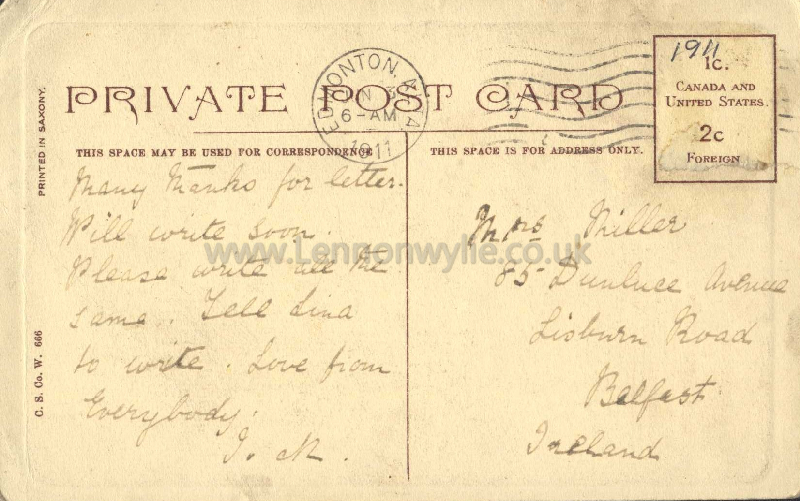 1911
1c.
CANADA AND
UNITED STATES.
2c
FOREIGN
EDMONTON, ALTA.
6-AM
1911
PRIVATE POST CARD
THIS SPACE MAY BE USED FOR CORRESPONDENCE
THIS SPACE IS FOR ADDRESS ONLY.
PRINTED IN SAXONY.
C. S. Co. W. 666
Many thanks for letter.
Will write soon.
Please write all the
same. Tell Lina
to write. Love from
Everybody.
Mrs Miller
85 Dunluce Avenue
Lisburn Road
Belfast
Ireland
www.Lennonwylie.co.uk